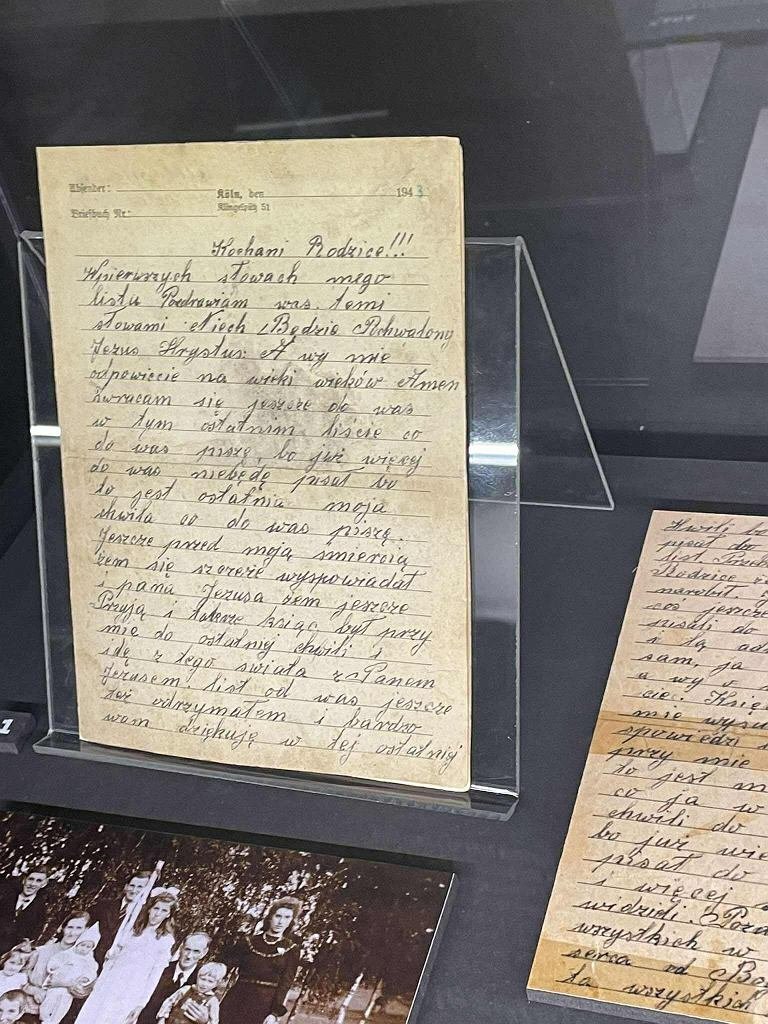 Absender:
Köln, den 1943
Klingelpütz 51
Briefbuch Nr.:
Kochani Rodzice!!!
Wpierwrzych słowach mego
listu Pozdrawiam was temi
słowami Niech Będzie Pochwalony
Jezus Hrystus: A wy mie
odpowiecie na wieki wieków Amen
Zwracam się jeszcze do was
w tym ostatnim liście co
do was piszę, bo już więcej
do was niebędę pisał bo
to jest ostatnia moja
chwila co do was piszę.
Jeszcze przed moją śmiercią
żem się szcreże wyspowiadał
i pana Jezusa żem jeszcze
Przyją i ksiąc był przy
mie do ostatniej chwili i
idę z tego swiata z Panem
Jezusem. list od was jeszcze
też odrzymałem i bardzo
wam dziękuję w tej ostatniej
1
Hwili bo
pisał do
list
Rodzice
narobił
coś jeszcze
pisali do
i tą
sam, ja
a wy o
cie. Księ
mie
spowiedzi
przy mie
to jest m
co ja w
chwili do
bo już wie
pisał do
i więcej
widzidi. Pozd
wszystkich w
serca od
ta wszystkich